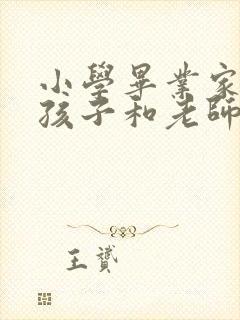 小學畢業家
孩子和老師
王贇